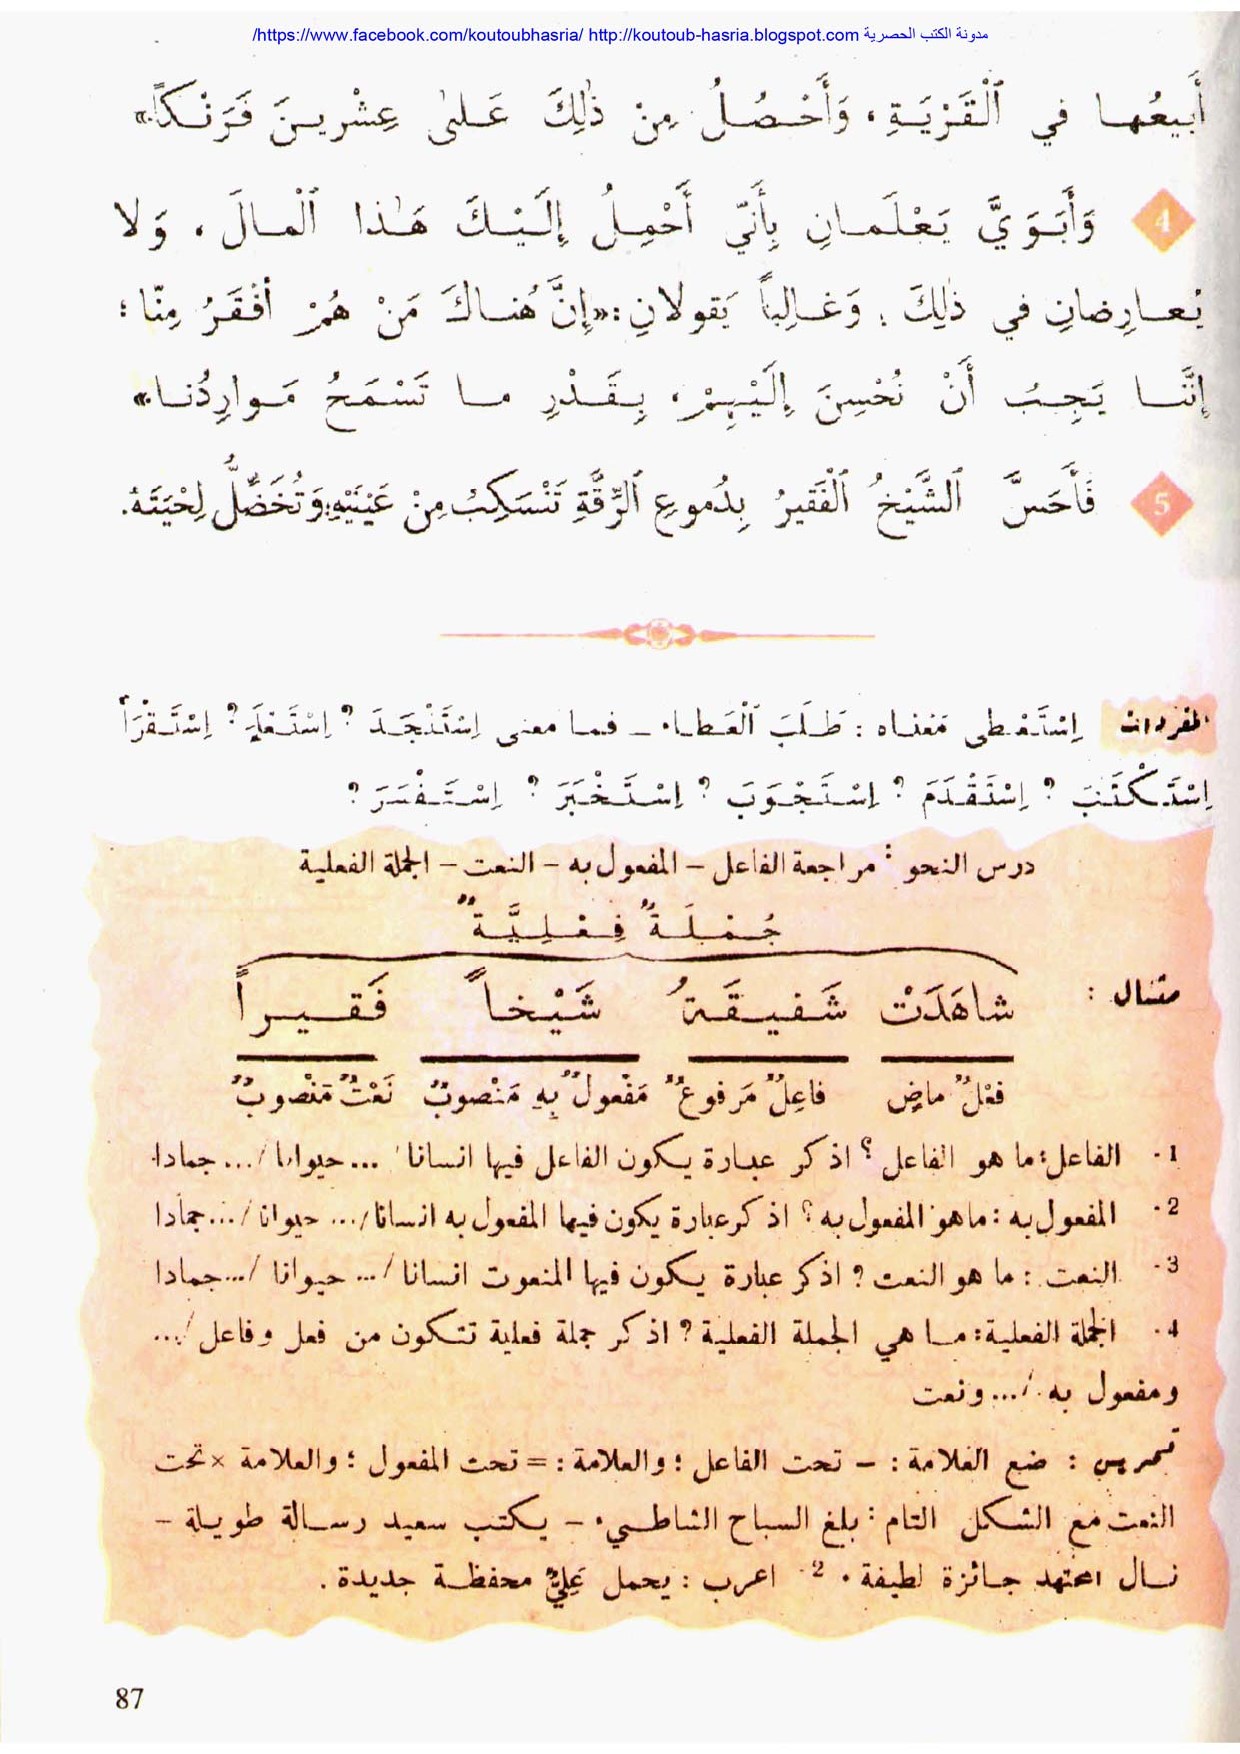 /https://www.facebook.com/koutoubhasria/ http://koutoub-hasria.blogspot.com مدونة الكتب الحصرية
أَبيعُـهـا في ٱلْقَـرْيَـةِ، وَأَحْـصُـلُ مِنْ ذٰلِكَ عَـلىٰ عِشْريـنَ فَرَنْكـاً.»
4 وَأَبَـوَيَّ يَـعْـلَـمـانِ بِأَنّي أَحْمِلُ إِلَـيْـكَ هَـٰذا ٱلْمـالَ، وَلا
يُـعـارِضـانِ في ذٰلِكَ؛ وَغـالِبـاً يَقولانِ:«إِنَّ هُنـاكَ مَنْ هُمْ أَفْقَـرُ مِنّـا؛
إِنَّنـا يَـجِـبُ أَنْ نُـحْسِنَ إِلَـيْـهِـمْ، بِـقَـدْرِ مـا تَسْمَـحُ مَـوارِدُنـا.»
5 فَأَحَسَّ ٱلشَّيْـخُ ٱلْفَقيـرُ بِدُموعِ ٱلرِّقَّةِ تَنْسَكِبُ مِنْ عَيْنَيْهِ؛ وَتُخَضِّلُ لِحْيَتَهُ.
المفردات اِسْتَـعْـطى مَعْنـاه : طَـلَـبَ ٱلْعَـطـاء. ـ فمـا معنى اِسْتَنْجَـدَ ؟ اِسْتَـعْـلَمَ ؟ اِسْتَـقْـرَأَ
اِسْتَـكْـتَبَ ؟ اِسْتَقْـدَمَ ؟ اِسْتَـجْـوَبَ ؟ اِسْتَـخْبَرَ ؟ اِسْتَـفْسَرَ ؟
درس النحو : مراجعة الفاعل – المفعول به – النعت – الجملة الفعلية
جُـمْـلَـةٌ فِـعْـلِـيَّـةٌ
مثـال : شاهَدَتْ شَفيـقَـةُ شَيْـخـاً فَـقـيـراً
فِعْلٌ ماضٍ فاعِلٌ مَرفوعٌ مَفْعولٌ بِهِ مَنْصوبٌ نَعْتٌ مَنْصوبٌ
1. الفاعل: ما هو الفاعل ؟ اذكر عبـارة يـكون الفاعل فيها انسانا / ... حيوانا / ... جمادا
2. المفعول به : ما هو المفعول به ؟ اذكر عبارة يكون فيها المفعول به انسانا / ... حيوانا / ... جمادا
3. النعت : ما هو النعت ؟ اذكر عبارة يـكون فيها المنعوت انسانا / ... حيوانا / ... جمادا
4. الجملة الفعلية: مـا هي الجملة الفعلية ؟ اذكر جملة فعلية تتـكون من فعل وفاعل / ...
ومفعول به / ... ونعت
تمريـن : ضع العلامة : – تحت الفاعل ؛ والعلامة : = تحت المفعول ؛ والعلامة × تحت
النعت مع الشـكل التام : بلغ السباح الشاطـيء. – يـكتب سعيد رسـالة طويـلة –
نـال المجتهد جـائزة لطيفة. 2. اعرب : يحمل عَلِيٌّ محفظـة جديدة.
87